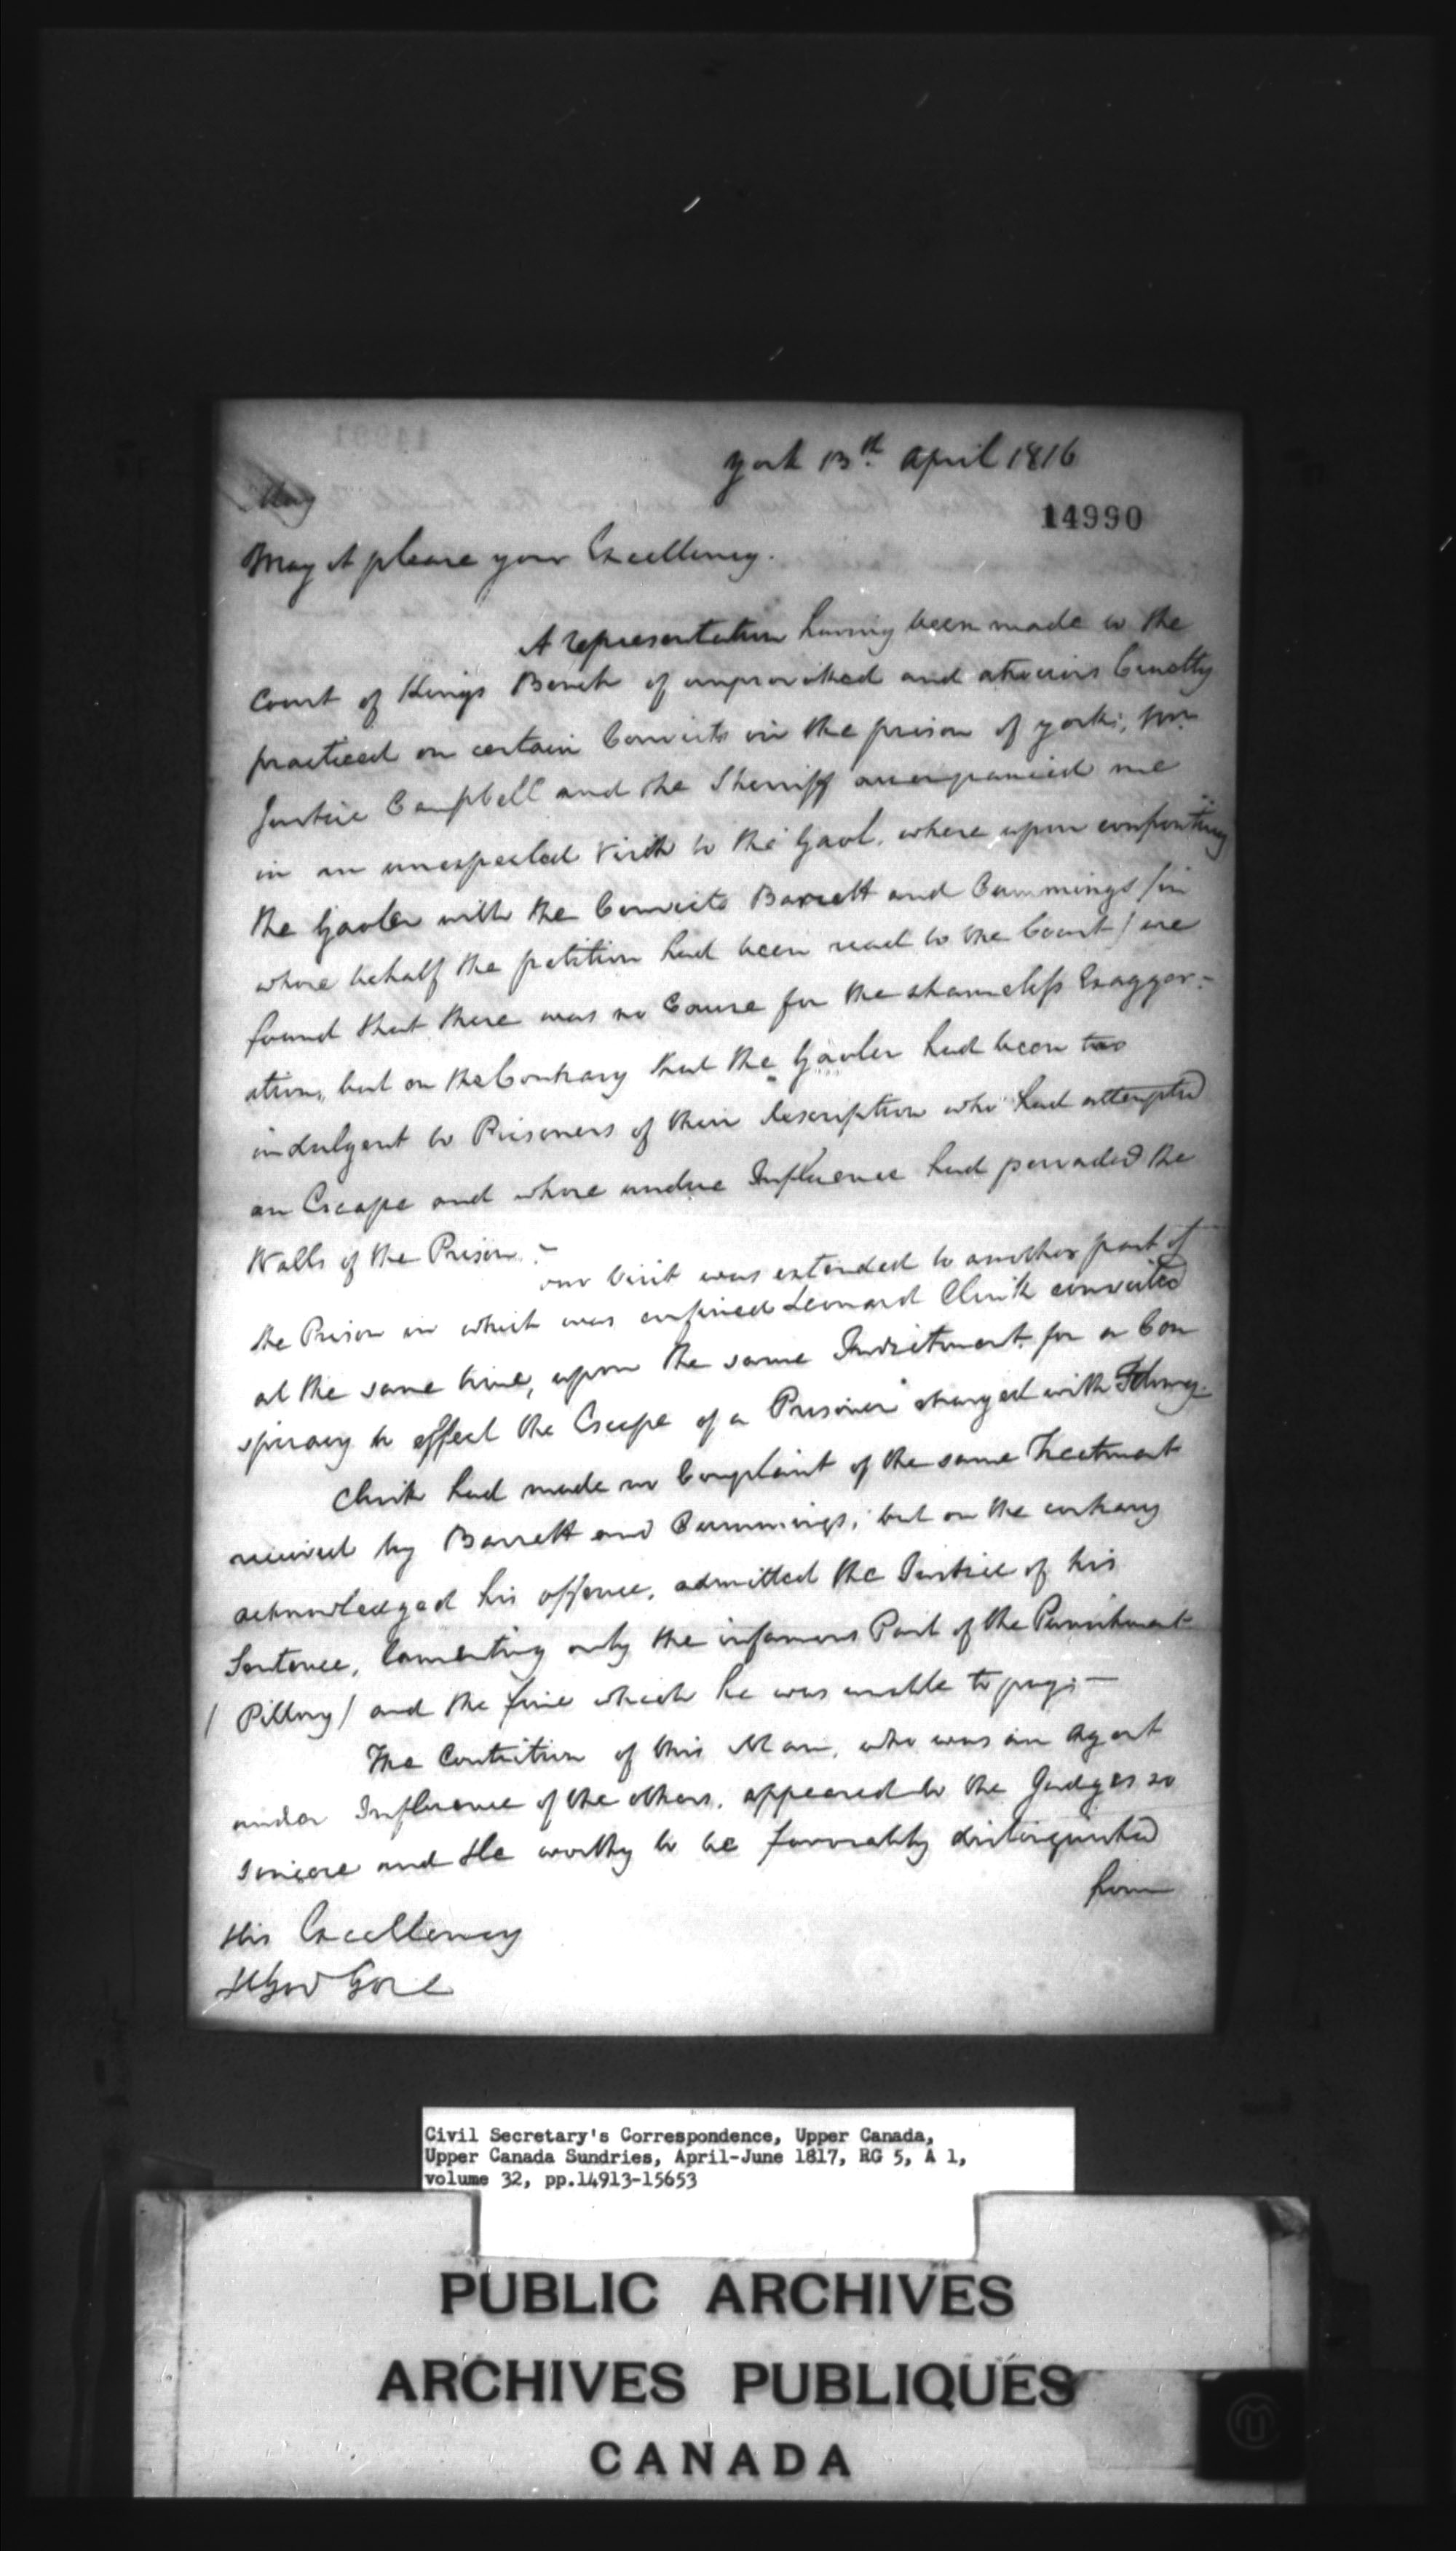 York 13th. April 1816
14990
May it please your Excellency.
A representation having been made to the
Court of Kings Bench of unprovoked and atrocious Cruelty
practiced on certain Convicts in the prison of york, Mr.
Justice Campbell and the Sherriff accompanied me
in an unexpected visit to the Gaol. where upon confronting
the Gaoler with the Convicts Barrett and Cummings /in
whose behalf the petition had been read to the Court/ we
found that there was no Cause for the shameless Exagger-
ation, but on the Contrary that the Gaoler had been too
indulgent to Prisoners of their description who had attempted
an Escape and whose undue Influence had pervaded the
Walls of the Prison. -
our visit was extended to another part of
the Prison in which was confined Leonard convicted
at the same time, upon the same Indictment for a Con
spiracy to effect the Escape of a Prisoner charged with Felony.
had made no Complaint of the same Treatment
received by Barrett and Cummings, but on the contrary
acknowledged his offence, admitted the Justice of his
Sentence, lamenting only the infamous Part of the Punishment
/ Pillory / and the fine which he was unable to pay: —
The Contrition of this Man, who was an Agent
under Influence of the others, appeared to the Judges so
sincere and He worthy to be favorably distinguished
from
His Excellency
Lt Gov Gore
Civil Secretary's Correspondence, Upper Canada,
Upper Canada Sundries, April-June 1817, RG 5, A 1,
volume 32, pp.14913-15653
PUBLIC ARCHIVES
ARCHIVES PUBLIQUES
CANADA